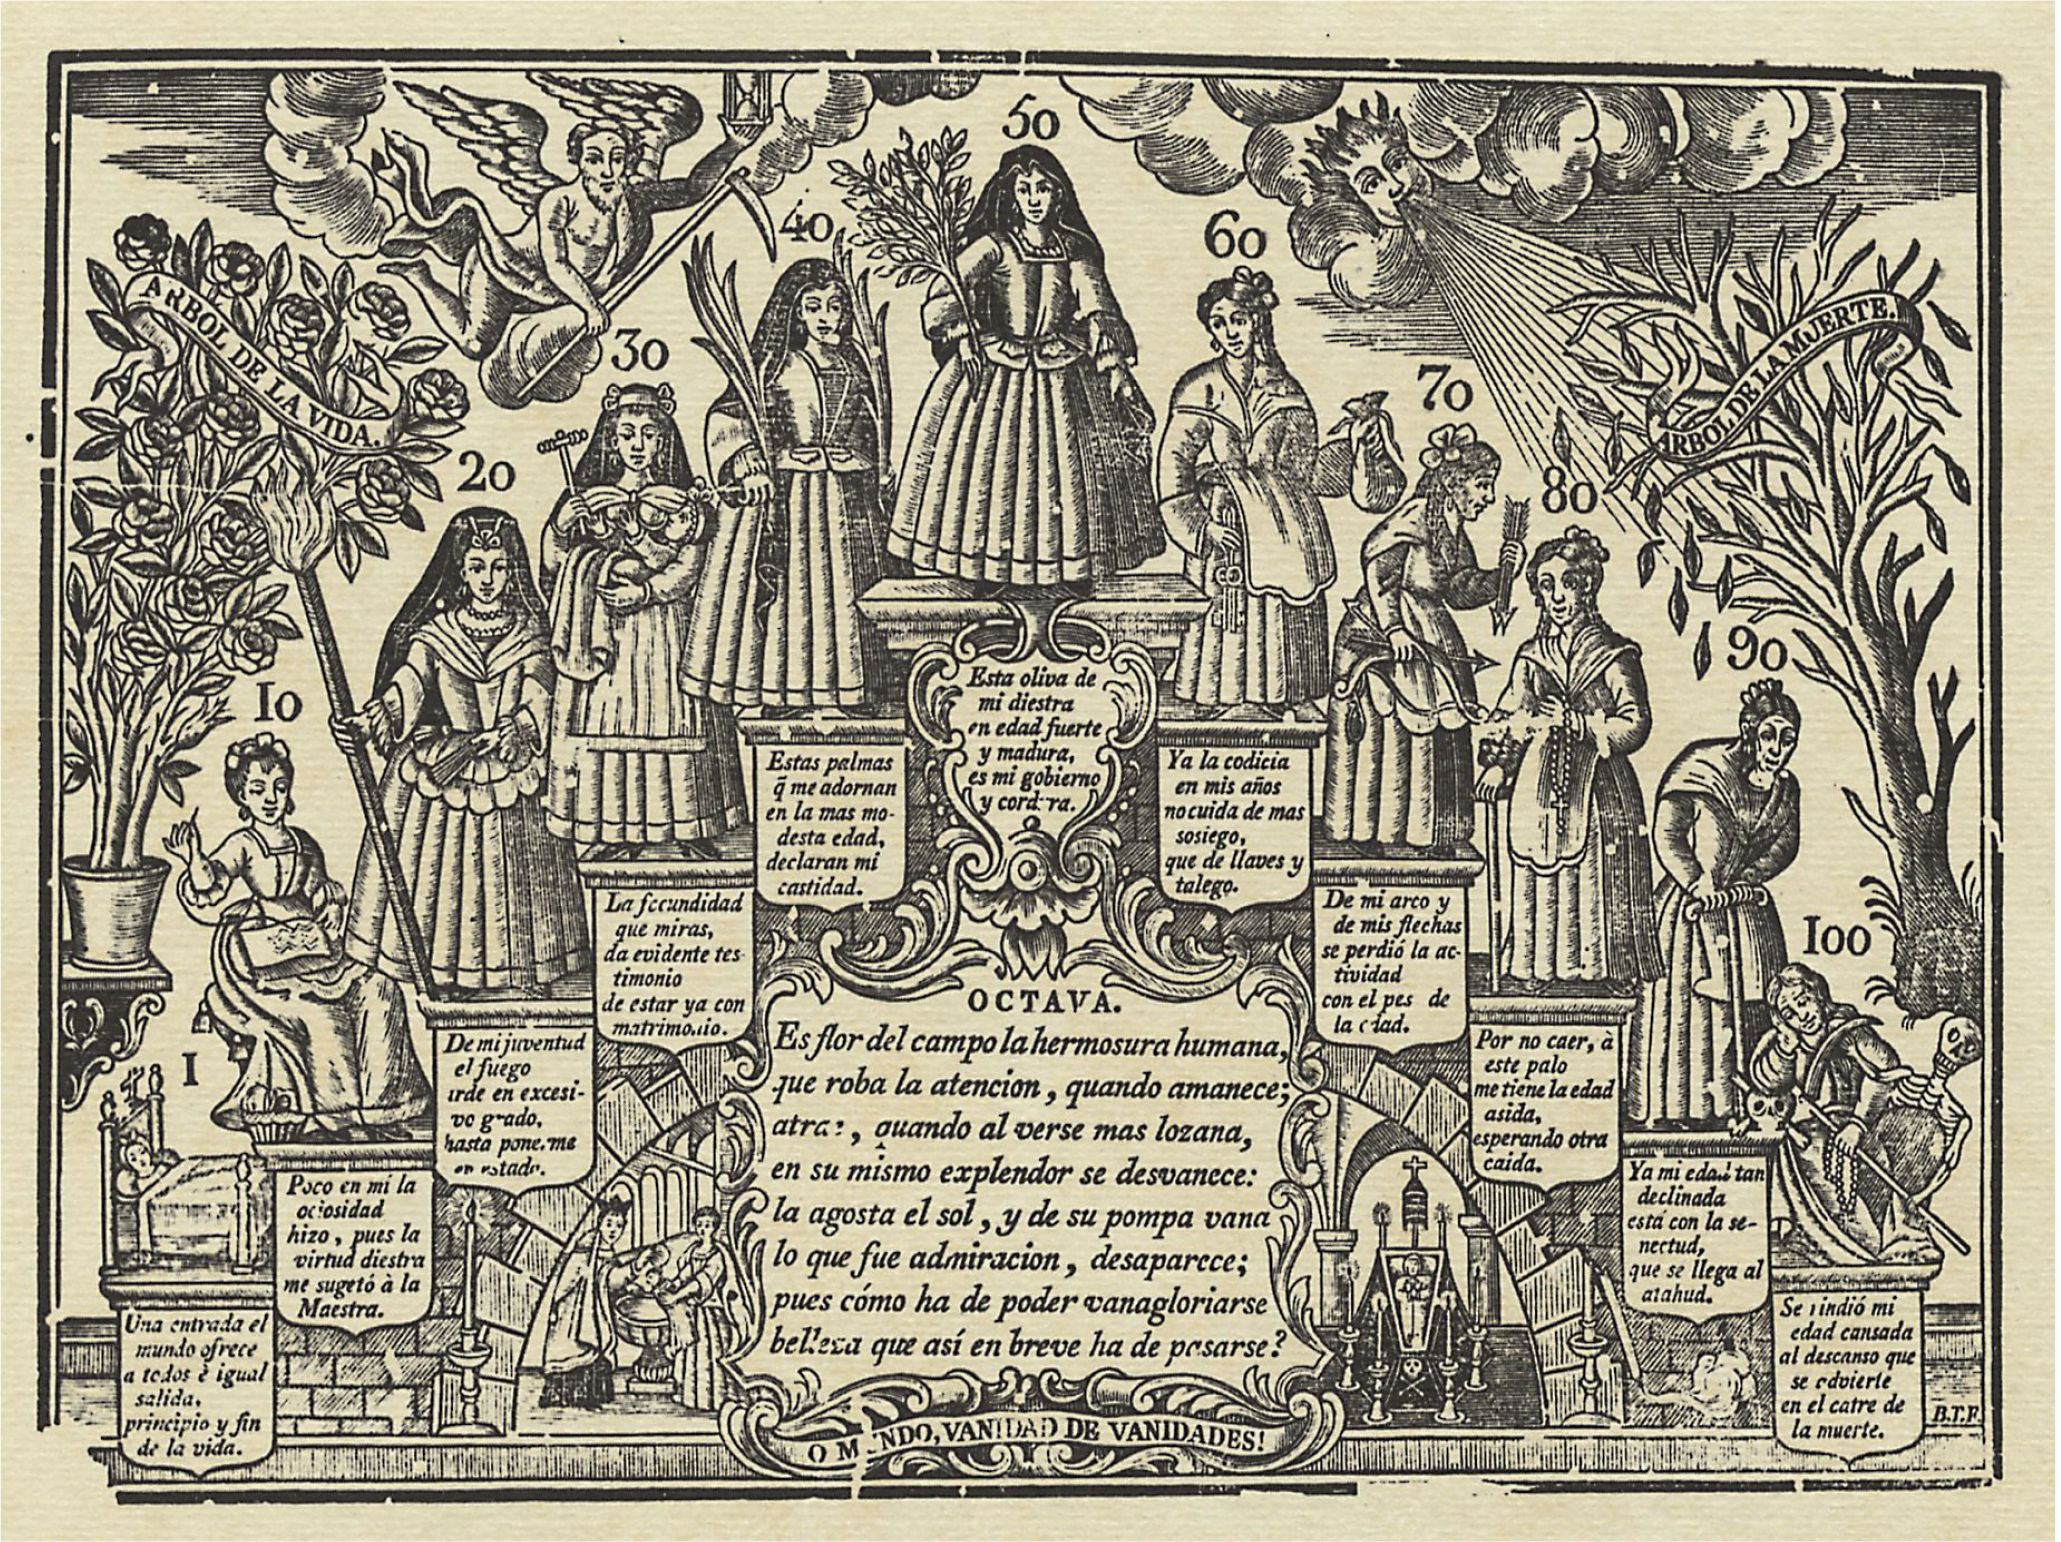 50
40
60
30
70
20
80
10
90
1
100
ARBOL DE LA VIDA.
ARBOL DE LA MUERTE.
Una entrada el
mundo ofrece
a todos è igual
salida,
principio y fin
de la vida.
Poco en mi la
ociosidad
hizo, pues la
virtud diestra
me sugetó à la
Maestra.
De mi juventud
el fuego
arde en excesi-
vo grado,
hasta ponerme
en estado.
La fecundidad
que miras,
da evidente tes-
timonio
de estar ya con
matrimonio.
Estas palmas
q̃ me adornan
en la mas mo-
desta edad,
declaran mi
castidad.
Esta oliva de
mi diestra
en edad fuerte
y madura,
es mi gobierno
y
Ya la codicia
en mis años
no cuida de mas
sosiego,
que de llaves y
talego.
De mi arco y
de mis flechas
se perdió la ac-
tividad
con el pes de
la edad.
Por no caer, à
este palo
me tiene la edad
asida,
esperando otra
caida.
Ya mi edad tan
declinada
está con la se-
nectud,
que se llega al
atahud.
Se rindió mi
edad cansada
al descanso que
se advierte
en el catre de
la muerte.
OCTAVA.
Es flor del campo la hermosura humana,
que roba la atencion, quando amanece;
quando al verse mas lozana,
en su mismo explendor se desvanece:
la agosta el sol, y de su pompa vana
lo que fue admiracion, desaparece;
pues cómo ha de poder vanagloriarse
belleza que así en breve ha de pasarse?
O MUNDO, VANIDAD DE VANIDADES!
B.T.F.